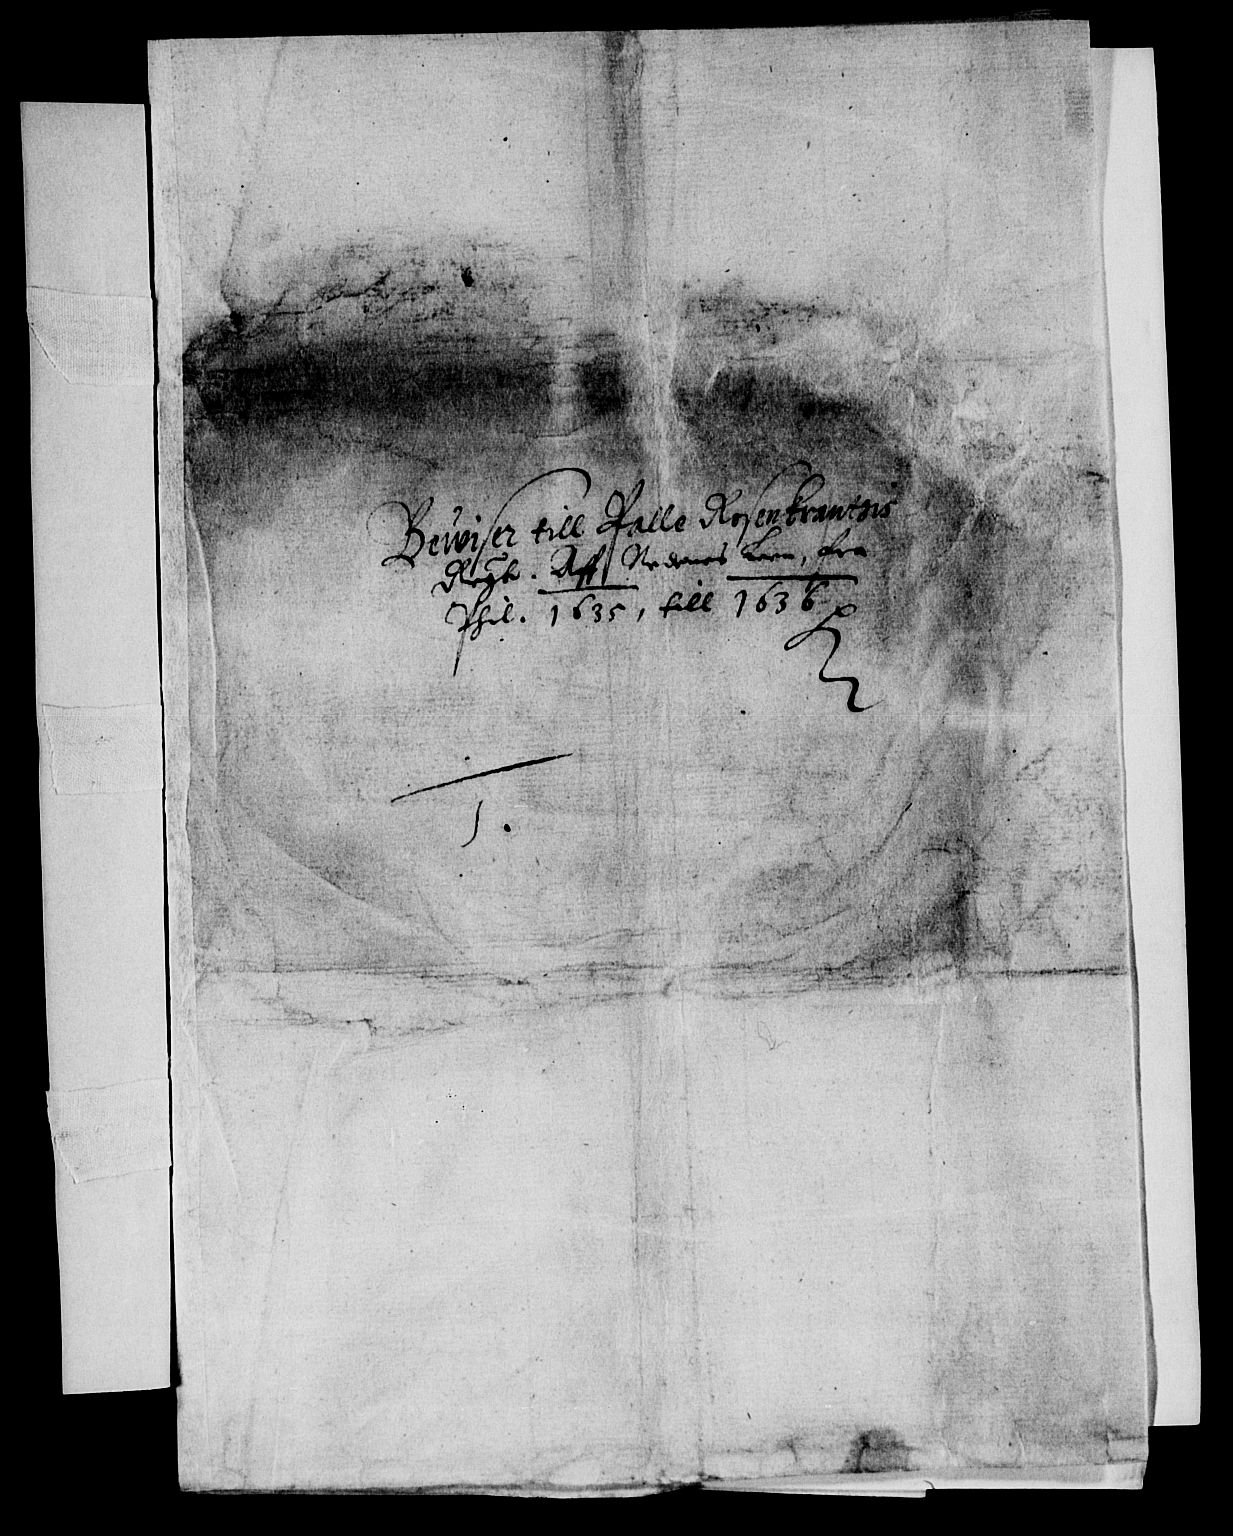 Bewiser till Palle Rosenkrantzis
Regsk. Aff Nedenes Leen, fra
Phil. 1635, till 1636
1.